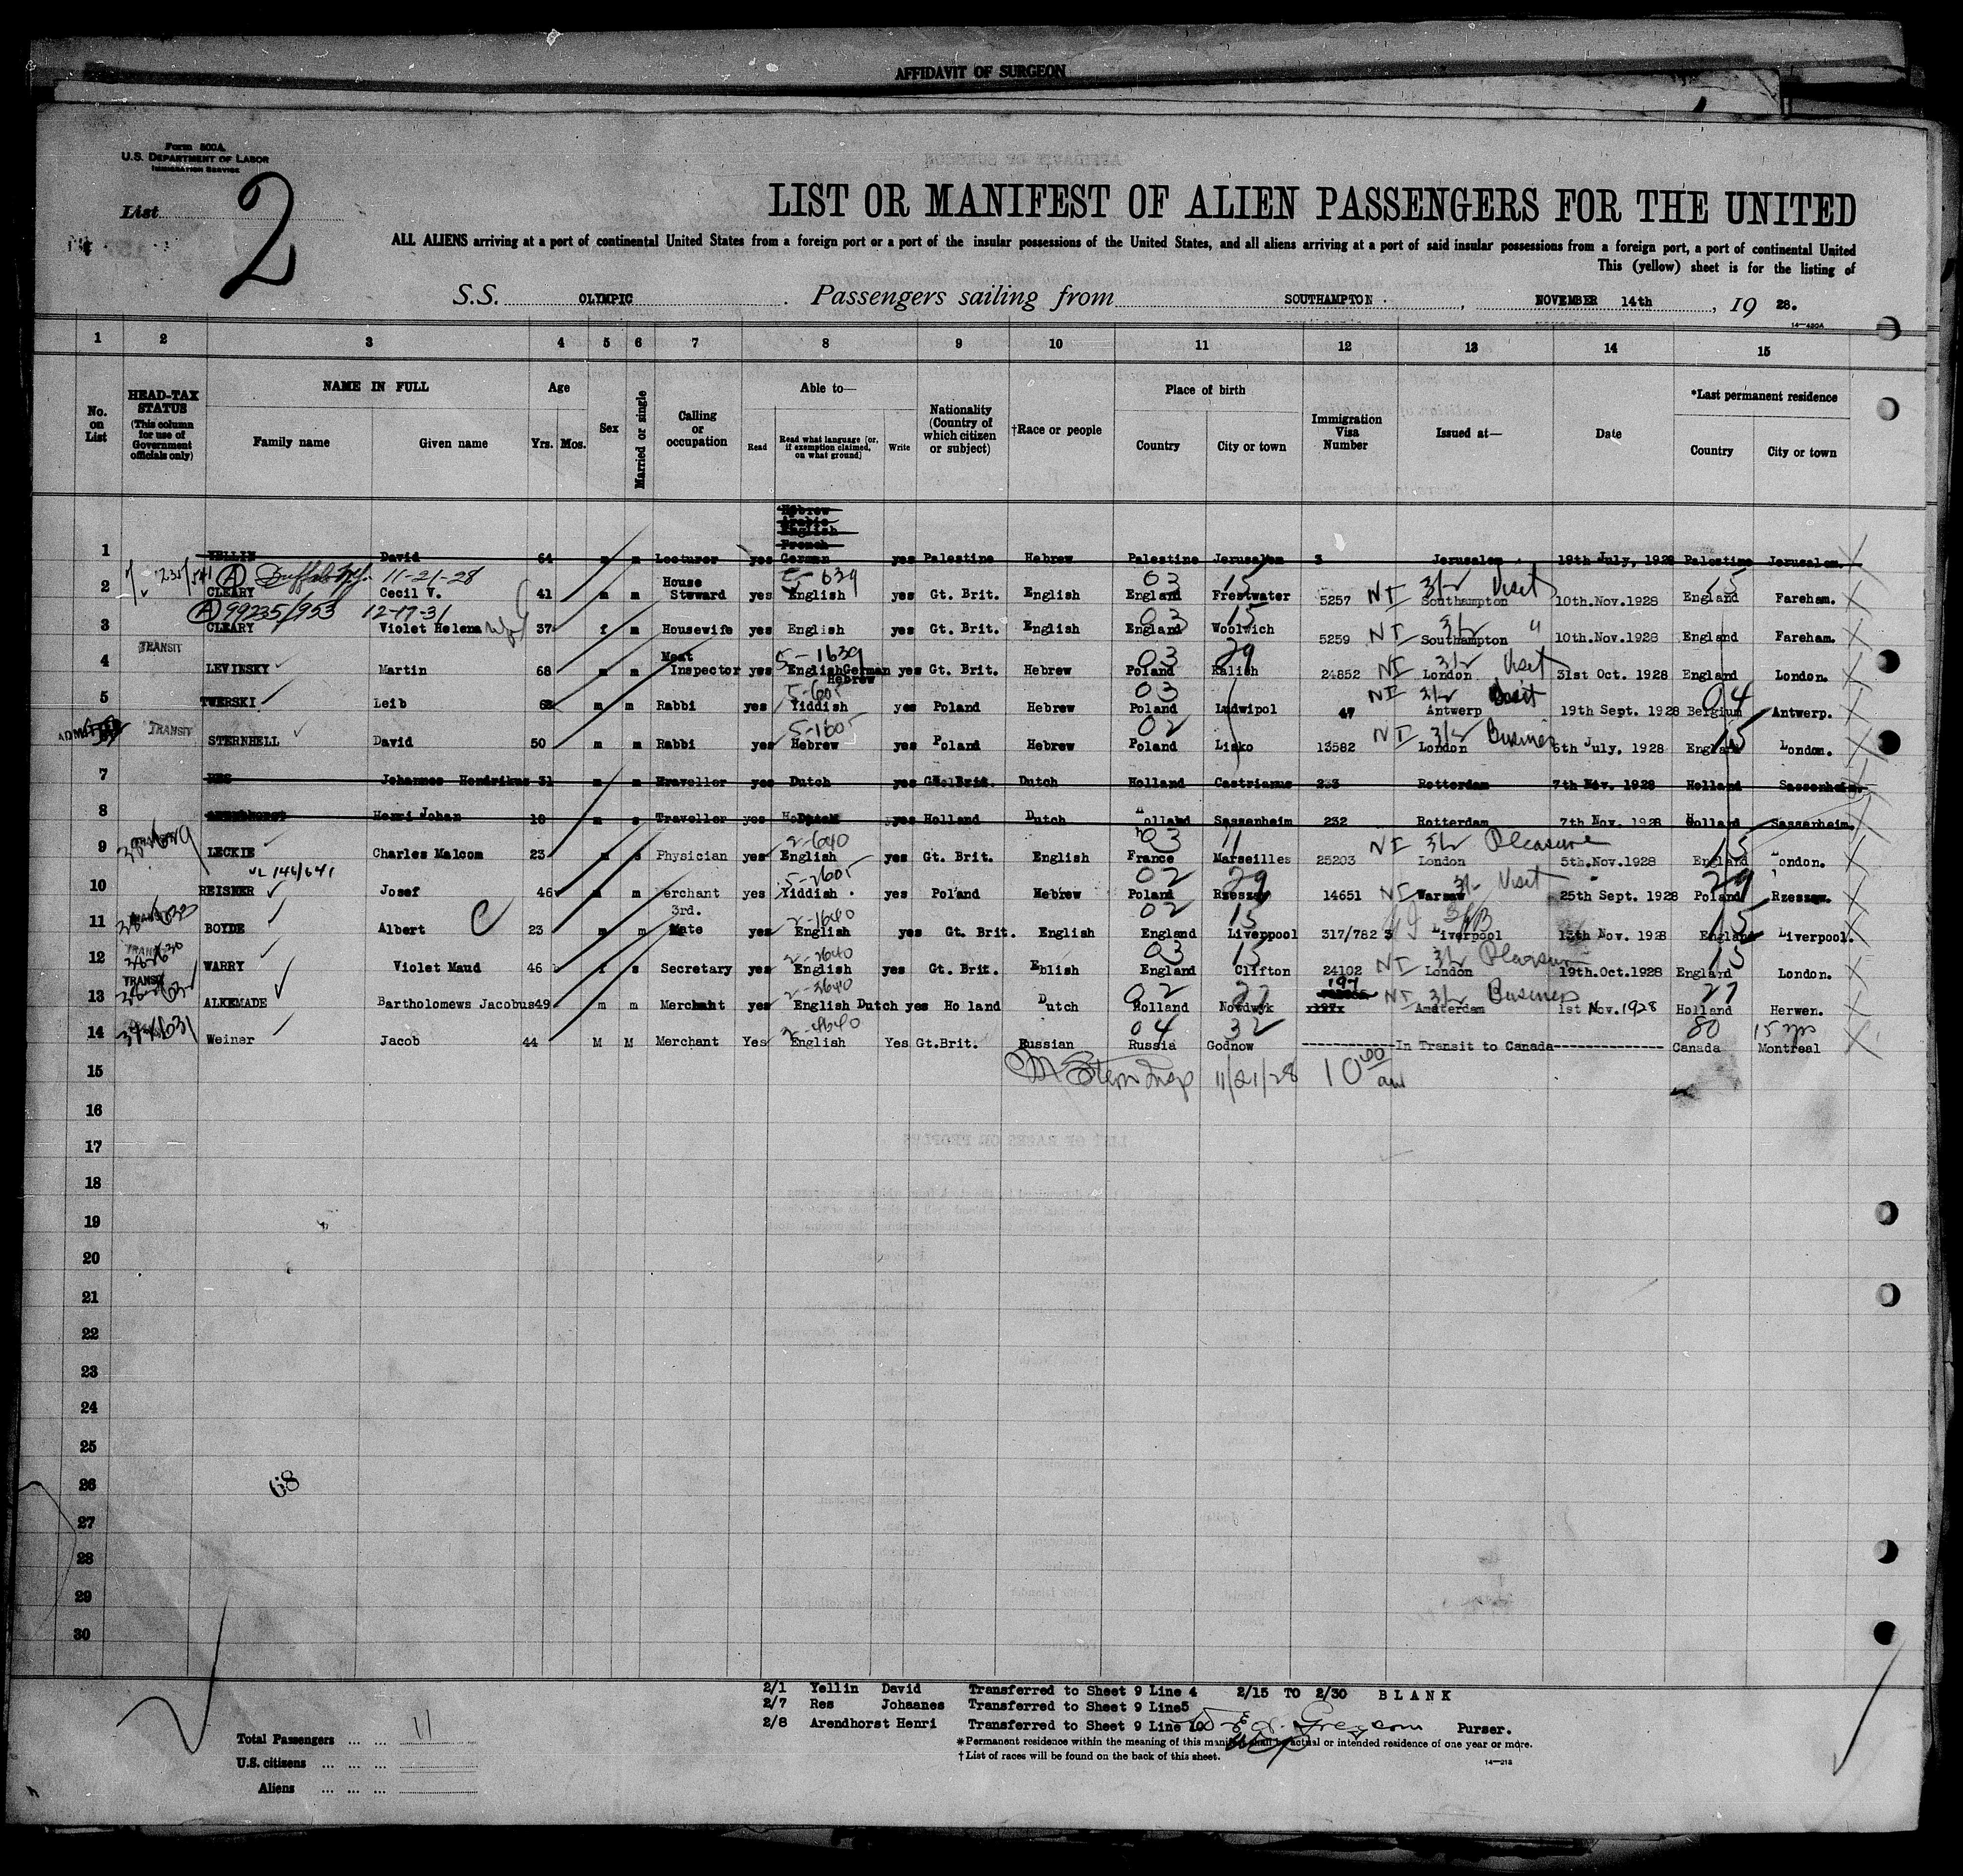 AFFIDAVIT OF SURGEON
Form 500A
U.S. DEPARTMENT OF LABOR
IMMIGRATION SERVICE
List 2
LIST OR MANIFEST OF ALIEN PASSENGERS FOR THE UNITED
ALL ALIENS arriving at a port of continental United States from a foreign port or a port of the insular possessions of the United States, and all aliens arriving at a port of said insular possessions from a foreign port, a port of continental United
This (yellow) sheet is for the listing of
S.S. OLYMPIC Passengers sailing from SOUTHAMPTON, NOVEMBER 14th, 19 28.
14—420A
1 2 3 4 5 6 7 8 9 10 11 12 13 14 15
No. on List
HEAD-TAX STATUS (This column for use of Government officials only)
NAME IN FULL Family name Given name
Age Yrs. Mos.
Sex
Married or single
Calling or occupation
Able to— Read Read what language [or, if exemption claimed, on what ground] Write
Nationality (Country of which citizen or subject)
†Race or people
Place of birth Country City or town
Immigration Visa Number
Issued at—
Date
*Last permanent residence Country City or town
Hebrew
Arabic
English
French
1 YELLIN David 64 m m Lecturer yes German yes Palestine Hebrew Palestine Jerusalem 3 Jerusalem 19th July, 1928 Palestine Jerusalem.
A Buffalo N.Y. 11-21-28 5-639 03 15
2 CLEARY Cecil V. 41 m m House Steward yes English yes Gt. Brit. English England Freswater 5257 NI 3/2 Visit Southampton 10th.Nov.1928 England 15 Fareham.
A 99235/953 12-17-31 03 15
3 CLEARY Violet Helena 37 f m Housewife yes English yes Gt. Brit. English England Woolwich 5259 NI 3/2 " Southampton 10th.Nov.1928 England Fareham.
TRANSIT 5-1639 03 29
4 LEVIESKY Martin 68 m m Meat Inspector yes English German Hebrew yes Gt. Brit. Hebrew Poland Kalish 24852 NI 3/2 Visit London 31st Oct. 1928 England London.
5-605 03 04
5 TWERSKI Leib 62 m m Rabbi yes Yiddish yes Poland Hebrew Poland Ludwipol 47 NI 3/2 Visit Antwerp 19th Sept. 1928 Belgium Antwerp.
ADMITTED TRANSIT 5-1605 02 15
STERNHELL David 50 m m Rabbi yes Hebrew yes Poland Hebrew Poland Lisko 13582 NI 3/2 Business London 6th July, 1928 England London.
7 RES Johannes Hendrikus 31 m m Traveller yes Dutch yes Dutch Holland Castrianus 233 Rotterdam 7th Nov. 1928 Holland Sassenheim.
8 ARENDHORST Henri Johan 18 m s Traveller yes yes Holland Dutch Holland Sassenheim 232 Rotterdam 7th Nov. 1928 Holland Sassenheim.
2-640 03 11 15
9 LECKIE Charles Malcom 23 m s Physician yes English yes Gt. Brit. English France Marseilles 25203 NI 3/2 Pleasure London 5th.Nov.1928 England London.
VL 146/641 5-2605 02 29 29
10 REISNER Josef 46 m m erchant yes Yiddish yes Poland Hebrew Poland Rzeszow 14651 NI 3/2 Visit Warsaw 25th Sept. 1928 Poland Rzeszow.
2-1640 02 15 15
11 BOYDE Albert 23 m m 3rd. Mate yes English yes Gt. Brit. English England Liverpool 317/782 Liverpool 13th Nov. 1928 England Liverpool.
TRANSIT 2-2640 03 15 15
12 WARRY Violet Maud 46 f s Secretary yes English yes Gt. Brit. Eblish England Clifton 24102 NI 3/2 Pleasure London 19th.Oct.1928 England London.
TRANSIT 2-3640 02 27 27
13 ALKEMADE Bartholomews Jacobus 49 m m Merchant yes English Dutch yes Ho land Dutch Holland Nordwyk 197 NI 3/2 Business Amsterdam 1st Nov.1928 Holland Herwen.
2-4640 04 32 80 15 yrs
14 Weiner Jacob 44 M M Merchant Yes English Yes Gt.Brit. Russian Russia Godnow ------------In Transit to Canada--------------- Canada Montreal
M Stern Insp 11/21/28 10 00 am
15
16
17
18
19
20
21
22
23
24
25
26
68
27
28
29
30
2/1 Yellin David Transferred to Sheet 9 Line 4 2/15 TO 2/30 BLANK
2/7 Res Johaanes Transferred to Sheet 9 Line5
2/8 Arendhorst Henri Transferred to Sheet 9 Line 10 Purser.
Total Passengers ... ... 11
U.S. citizens ... ... ...
Aliens ... ... ...
*Permanent residence within the meaning of this manifest shall be actual or intended residence of one year or more.
†List of races will be found on the back of this sheet.
14—213